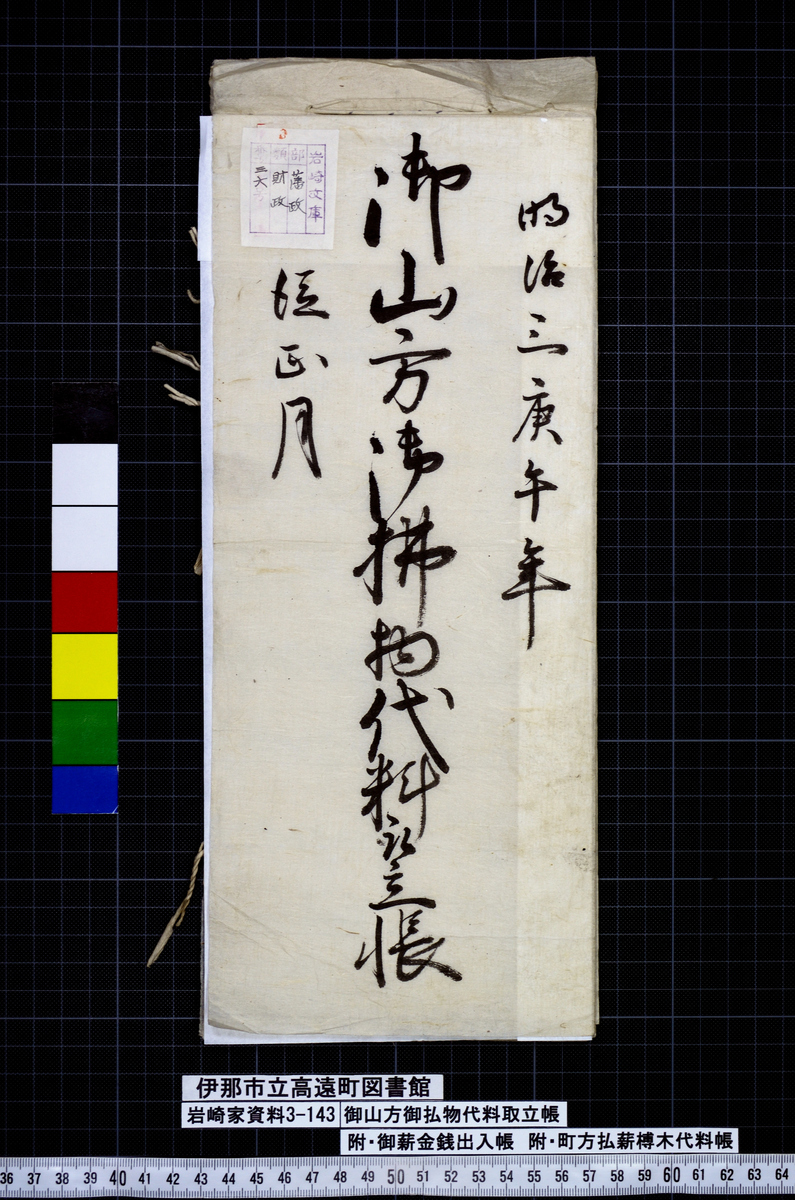 明治三庚午年
御山方御拂物代料取立帳
従正月
岩崎文庫
部 藩政
類 財政
三六
伊那市立高遠町図書館
岩崎家資料3-143 御山方御払物代料取立帳
附・御薪金銭出入帳 附・町方払薪榑木代料帳
36 37 38 39 40 41 42 43 44 45 46 47 48 49 50 51 52 53 54 55 56 57 58 59 60 61 62 63 64